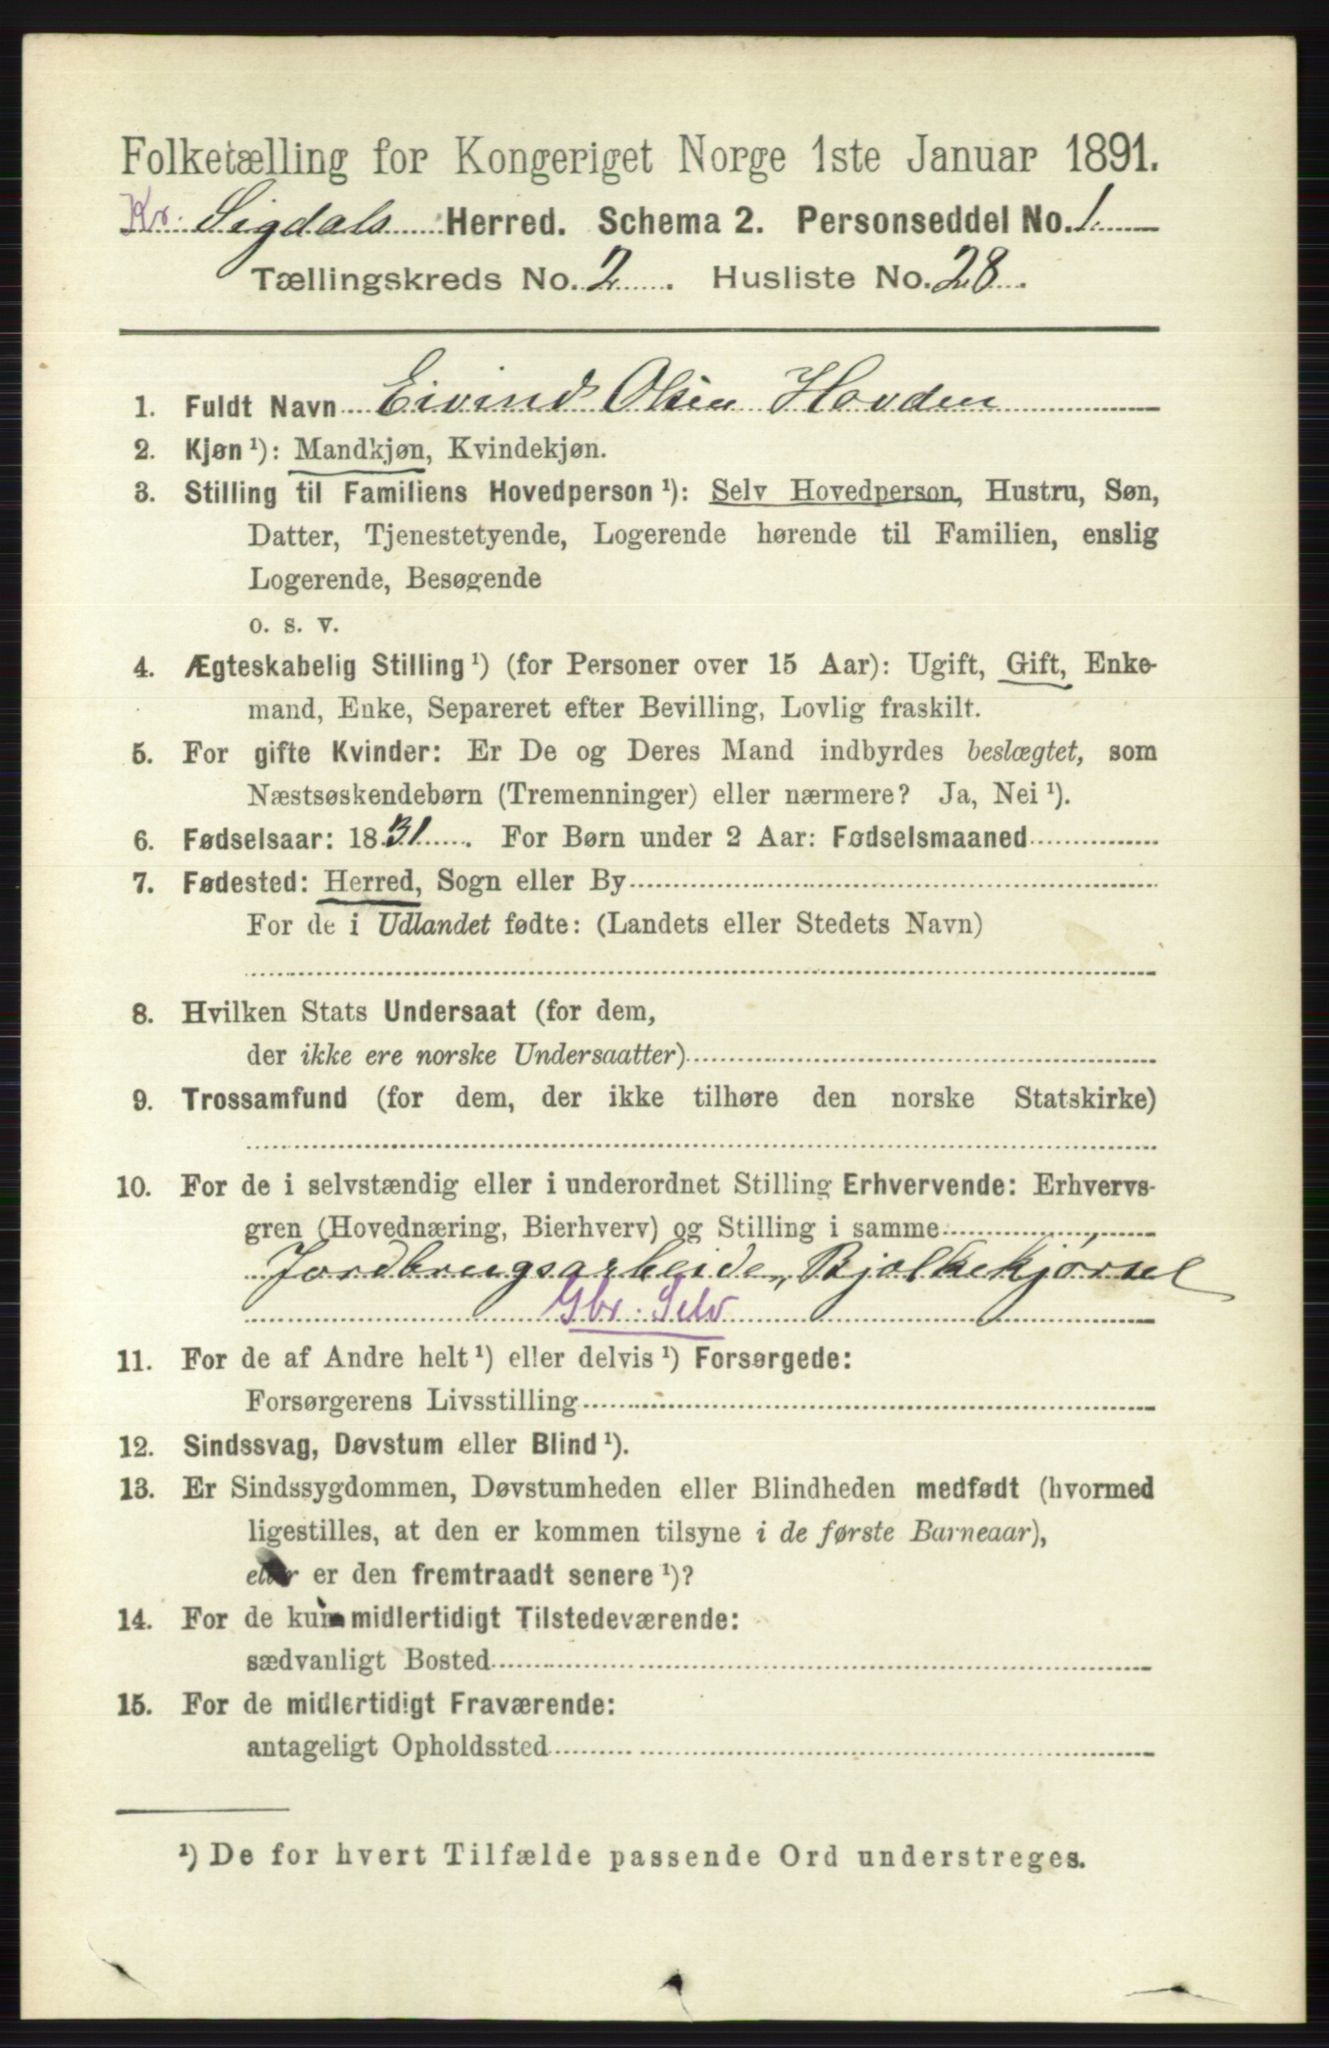 Folketælling for Kongeriget Norge 1ste Januar 1891.
Kr. Sigdals Herred. Schema 2. Personseddel No. 1.
Tællingskreds No. 2. Husliste No. 28.
1. Fuldt Navn Eivind Olsen Hovden
2. Kjøn ¹): Mandkjøn, Kvindekjøn.
3. Stilling til Familiens Hovedperson ¹): Selv Hovedperson, Hustru, Søn,
Datter, Tjenestetyende, Logerende hørende til Familien, enslig
Logerende, Besøgende
o. s. v.
4. Ægteskabelig Stilling ¹) (for Personer over 15 Aar): Ugift, Gift, Enke-
mand, Enke, Separeret efter Bevilling, Lovlig fraskilt.
5. For gifte Kvinder: Er De og Deres Mand indbyrdes beslægtet, som
Næstsøskendebørn (Tremenninger) eller nærmere? Ja, Nei ¹).
6. Fødselsaar: 1831. For Børn under 2 Aar: Fødselsmaaned
7. Fødested: Herred, Sogn eller By
For de i Udlandet fødte: (Landets eller Stedets Navn)
8. Hvilken Stats Undersaat (for dem,
der ikke ere norske Undersaatter)
9. Trossamfund (for dem, der ikke tilhøre den norske Statskirke)
10. For de i selvstændig eller i underordnet Stilling Erhvervende: Erhvervs-
gren (Hovednæring, Bierhverv) og Stilling i samme
Jordbrugsarbeide, Bjelkekjørsel
Gbr. Selv
11. For de af Andre helt ¹) eller delvis ¹) Forsørgede:
Forsørgerens Livsstilling
12. Sindssvag, Døvstum eller Blind ¹).
13. Er Sindssygdommen, Døvstumheden eller Blindheden medfødt (hvormed
ligestilles, at den er kommen tilsyne i de første Barneaar),
eller er den fremtraadt senere ¹)?
14. For de kun midlertidigt Tilstedeværende:
sædvanligt Bosted
15. For de midlertidigt Fraværende:
antageligt Opholdssted
¹) De for hvert Tilfælde passende Ord understreges.